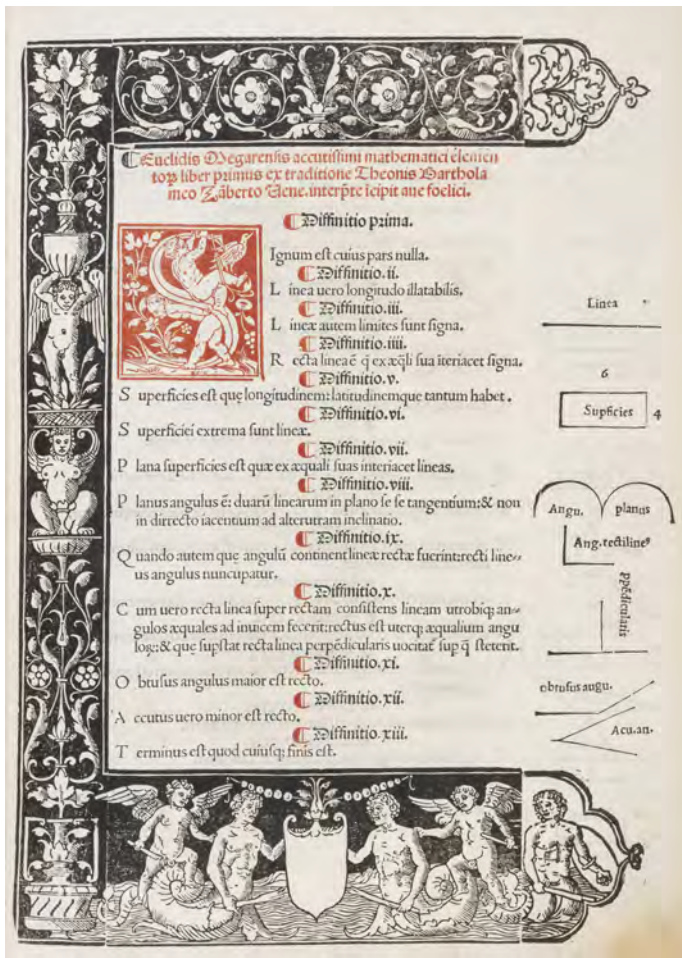 Euclidis Megarensis accutissimi mathematici elemen
toꝝ liber primus ex traditione Theonis Barthola
meo Zāberto Uene. interp̄te īcipit aue foelici.
Diffinitio prima.
Signum est cuius pars nulla.
Diffinitio.ii.
Linea uero longitudo illatabilis.
Diffinitio.iii.
Lineæ autem limites sunt signa.
Diffinitio.iiii.
Recta linea ē q̄ ex æq̄li sua īteriacet signa.
Diffinitio.v.
Superficies est quę longitudinem: latitudinemque tantum habet.
Diffinitio.vi.
Superficiei extrema sunt lineæ.
Diffinitio.vii.
Plana superficies est quæ ex æquali suas interiacet lineas.
Diffinitio.viii.
Planus angulus ē: duarū linearum in plano se se tangentium: & non
in dirrecto iacentium ad alterutram inclinatio.
Diffinitio.ix.
Quando autem quę angulū continent lineæ rectæ fuerint: recti line
us angulus nuncupatur.
Diffinitio.x.
Cum uero recta linea super rectam consistens lineam utrobiq; an
gulos æquales ad inuicem fecerit: rectus est uterq; æqualium angu
loꝝ: & quę supstat recta linea perpēdicularis uocitat᷑ sup q̄ steterit.
Diffinitio.xi.
Obtusus angulus maior est recto.
Diffinitio.xii.
Accutus uero minor est recto.
Diffinitio.xiii.
Terminus est quod cuiusq; finis est.
Linea
6
Supficies 4
Angu. planus
Ang. rectilineꝰ
ppēdicularis
obtusus augu.
Acu. an.